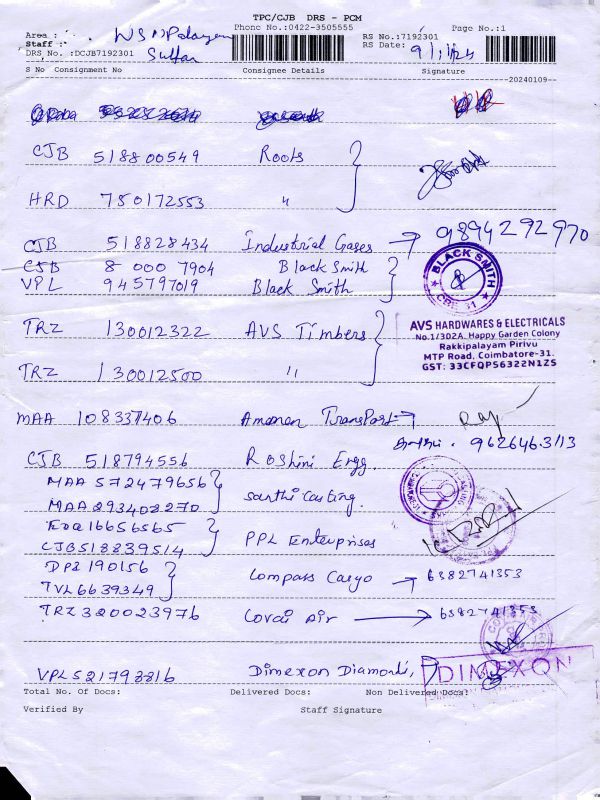 TPC/CJB DRS - PCM
Phone No.:0422-3505555
Page No.:1
Area :
RS No.:7192301
Staff :
RS Date: 9/1/24
DRS No. :DCJB7192301
S No Consignment No Consignee Details Signature
20240109
CJB 518800549 Roots
HRD 750172553 "
CJB 518828434 Industrial Gases → 9894292970
CJB 8000 7904 Black Smith
VPL 945797019 Black Smith
BLACK SMITH
CBE-31
TRZ 130012322 AVS Timbers
AVS HARDWARES & ELECTRICALS
No.1/302A, Happy Garden Colony
Rakkipalayam Pirivu
MTP Road, Coimbatore-31.
GST: 33CFQPS6322N1Z5
TRZ 130012500 "
MAA 108337406 Amman TransPort →
9626463113
CJB 518794556 Roshini Engg.
MAA 572479656
MAA 293402270 Santhi Casting.
16656565
CJB518839514 PPL Enterprises
DPI 190156
TVL 6639349 Compass Cargo → 6382741353
TRZ 320023976 Covai Air → 6382741353
VPL521793816 Dimexon Diamonds,
DIMEXON
Total No. Of Docs: Delivered Docs: Non Delivered Docs:
Verified By Staff Signature